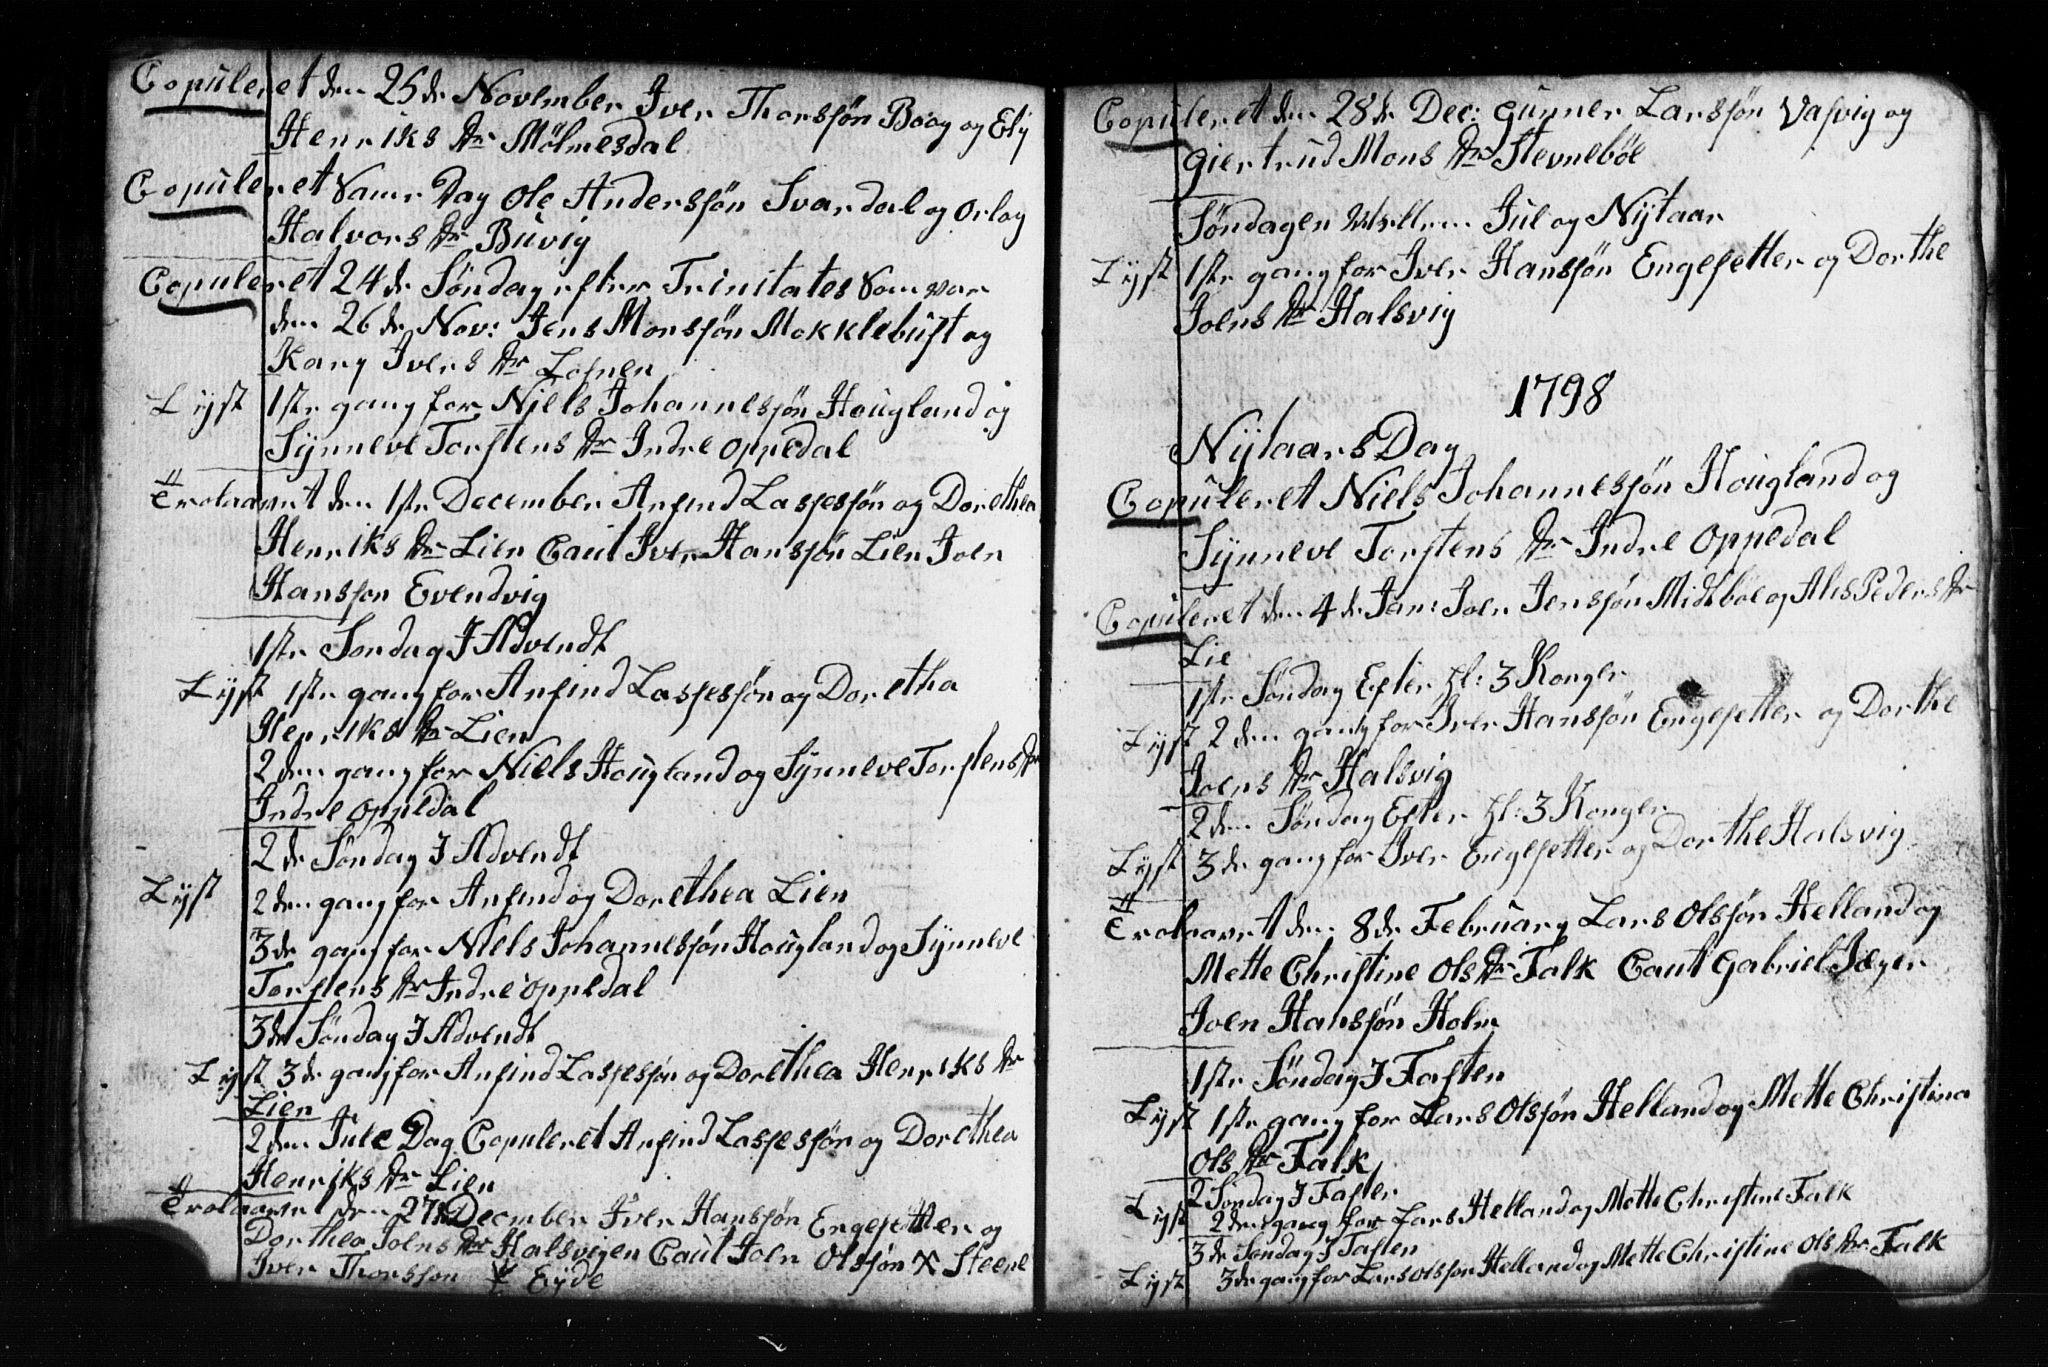 Copuleret den 25de November Iver Thorssøn Boog og Ely
Henriks Dr Mölmesdal
Copuleret Same Dag Ole Anderssøn Svardal og Orlog
Halvors Dr Buvig
Copuleret 24de Søndag efter Trinitates Som var
den 26de Nov: Jens Monssøn Mokklebust og
Kary Ivers Dr
Lyst 1ste gang for Niels Johannessøn Hougland og
Synneve Torstens Dr Indre Oppedal
Trolaavet den 1ste December Anfind Lassessøn og Dorethea
Henriks Dr Lien Caut Iver Hanssøn Lien Joen
Hanssøn Evendvig
1ste Søndag J Advendt
Lyst 1ste gang for Anfind Lassessøn og Doretha
Henriks Dr Lien
2den gang for Niels Hougland og Synneve Torstens Dr
Indre Oppedal
2de Søndag J Advendt
Lyst 2den gang for Anfind og Dorethea Lien
3de gang for Niels Johannessøn Hougland og Synneve
Torstens Dr Indre Oppedal
3de Søndag J Advendt
Lyst 3de gang for Anfind Lassessøn og Dorethea Henriks Dr
Lien
2den Jule Dag Copuleret Anfind Lassessøn og Dorethea
Henriks Dr Lien
Trolaavet den 27de December Iver Hanssøn Engesetter og
Dorthea Joens Dr Halsvigen Caut Joen Olssøn X Steene
Iver Thorssøn Eyde
Copuleret den 28de Dec: Gunner Larssøn Vasvig og
Giertrud Mons Dr Stevnebøe
Søndagen Mellem Jul og Nytaar
Lyst 1ste gang for Iver Hanssøn Engesetter og Dorthe
Joens Dr Halsvig
1798
Nytaars Dag
Copuleret Niels Johannessøn Hougland og
Synneve Torstens Dr Indre Oppedal
Copuleret den 4de Jan: Joen Jenssøn Midtbøe og Alis Peders Dr
Lie
1ste Søndag Efter Hl: 3 Konger
Lyst 2den gang for Iver Hanssøn Engesetter og Dorthe
Joens Dr Halsvig
2den Søndag Efter Hl: 3 Konger
Lyst 3de gang for Iver Engesetter og Dorthe Halsvig
Trolaavet den 8de February Lars Olssøn Helland og
Mette Christine Ols Dr Falk Caut Gabriel Jæger
Joen Hanssøn Holm
1ste Søndag J Fasten
Lyst 1ste gang for Lars Olssøn Helland og Mette Christina
Ols Dr Falk
2 Søndag J Fasten
Lyst 2den gang for Lars Helland og Mette Christine Falk
3de Søndag J Fasten
Lyst 3de gang for Lars Olssøn Helland og Mette Christine Ols Dr Falk